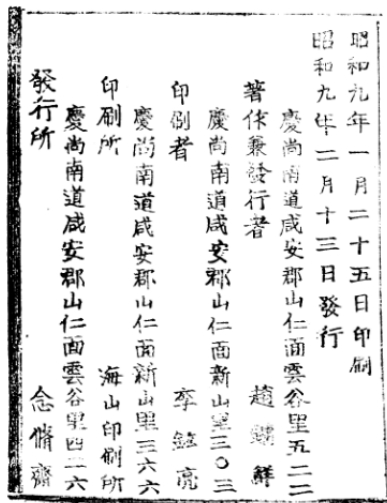 昭和九年一月二十五日印刷
昭和九年二月十三日發行
慶尚南道咸安郡山仁面雲谷里五二二
著作兼發行者 趙鏞
慶尚南道咸安郡山仁面新山里三〇三
印刷者 李 亮
慶尚南道咸安郡山仁面新山里三六六
印刷所 海山印刷所
慶尚南道咸安郡山仁面雲谷里四二六
發行所 念脩齋